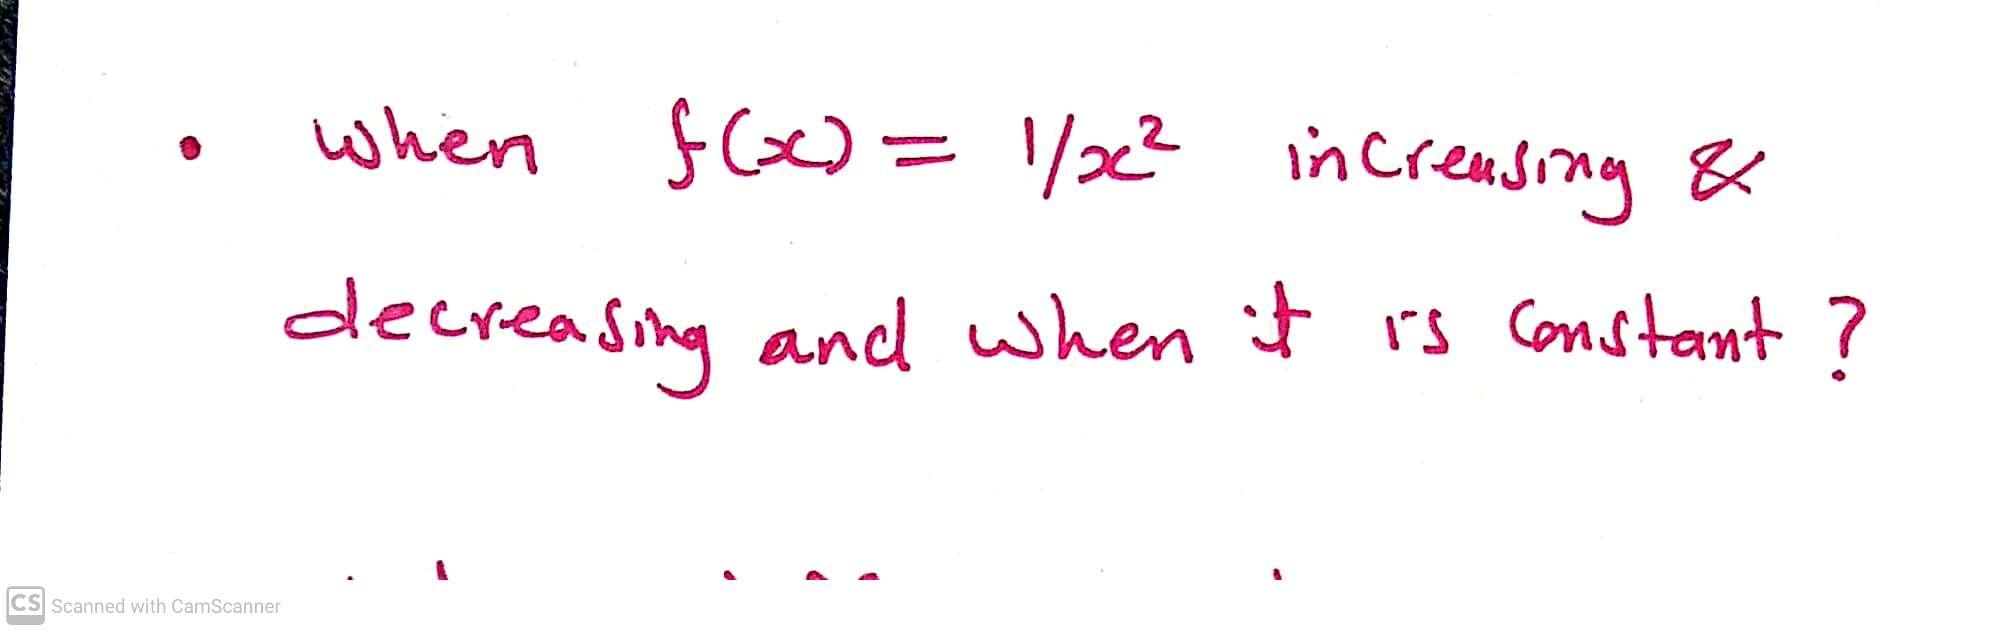 • when f(x) = 1/x² increasing &
decreasing and when it is constant ?
CS Scanned with CamScanner